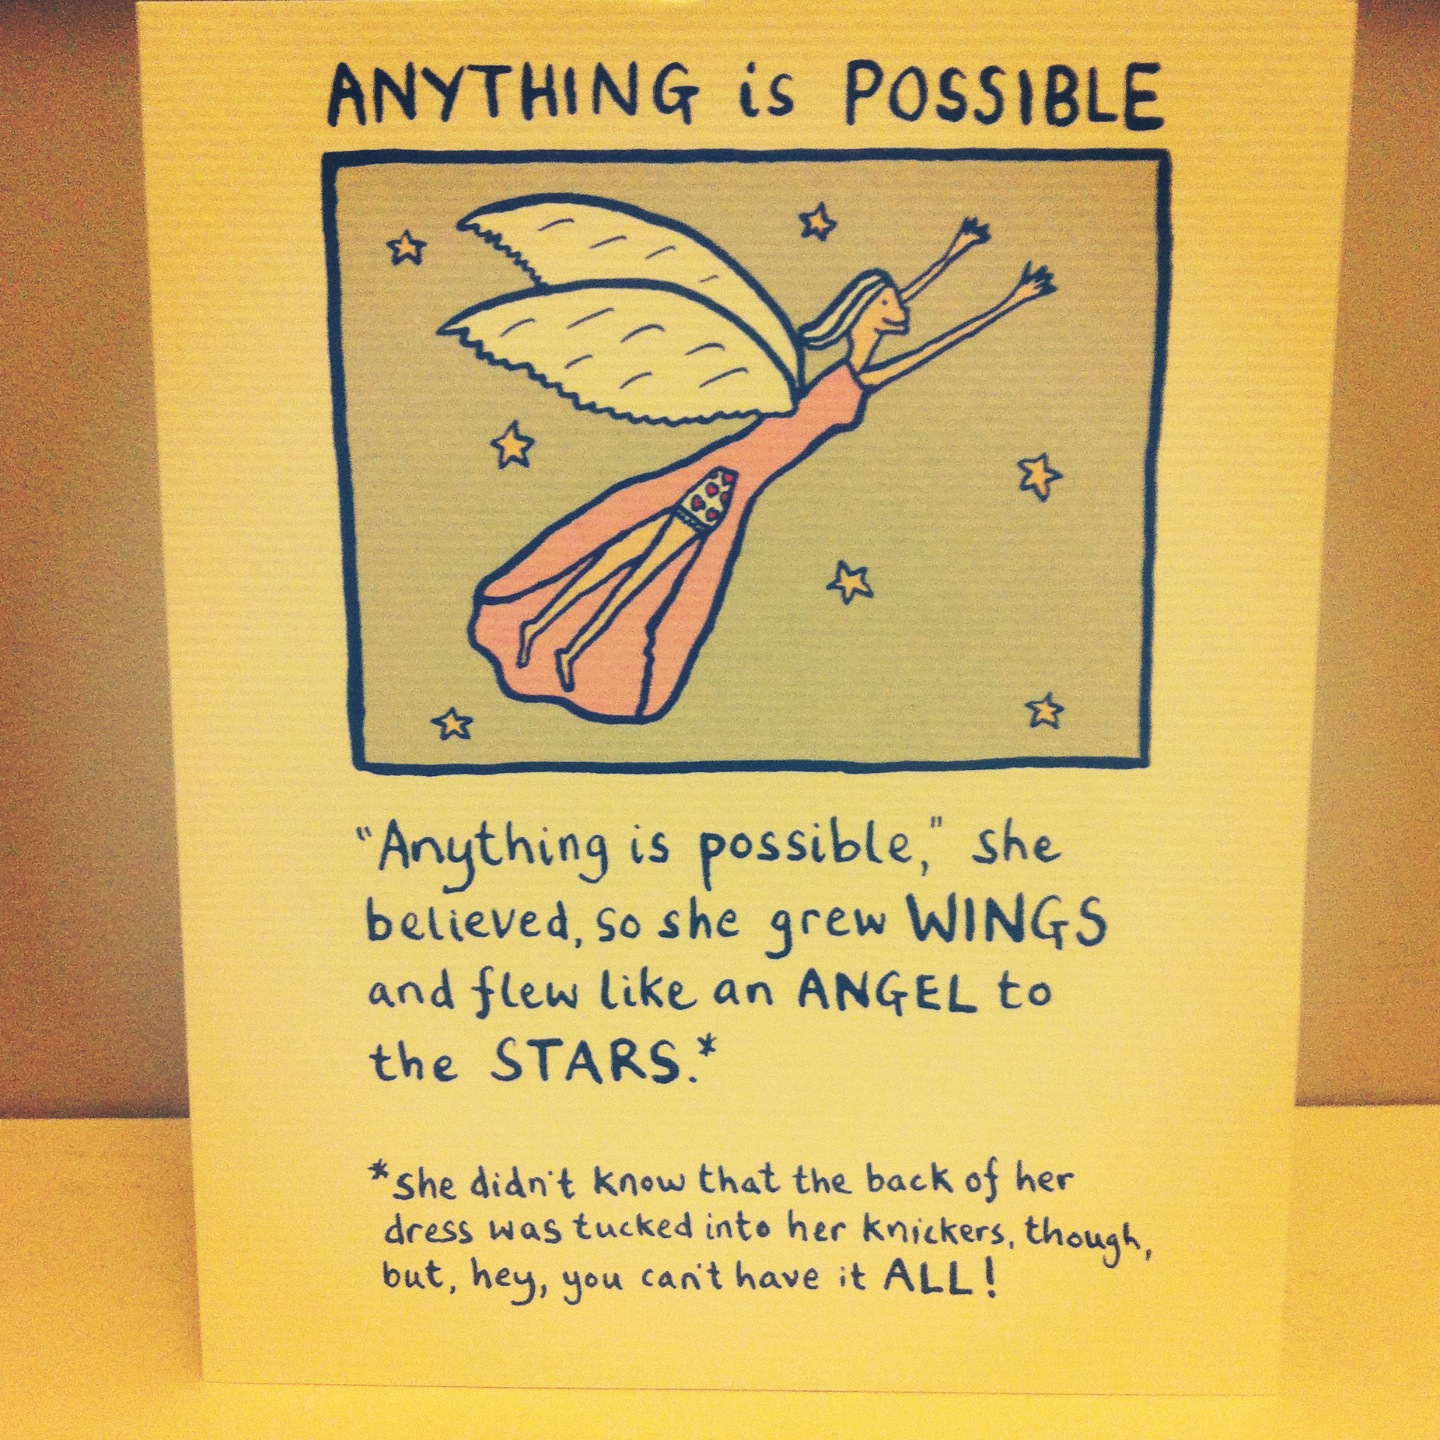 ANYTHING is POSSIBLE
"Anything is possible," she
believed, so she grew WINGS
and flew like an ANGEL to
the STARS.*
*She didn't know that the back of her
dress was tucked into her knickers, though,
but, hey, you can't have it ALL!